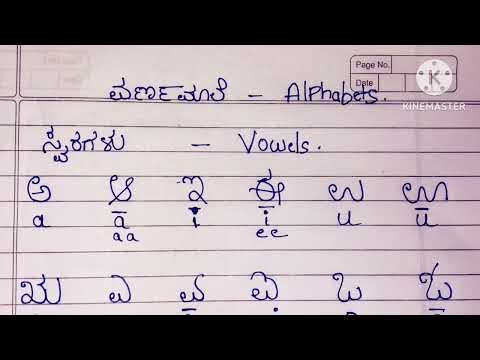 Page No.
Date
KINEMASTER
ವರ್ಣಮಾಲೆ - Alphabets.
ಸ್ವರಗಳು - Vowels.
ಅ ಆ ಇ ಈ ಉ ಊ
a ā i ī u ū
aa ee
ಋ ಎ ಏ ಐ ಒ ಓ